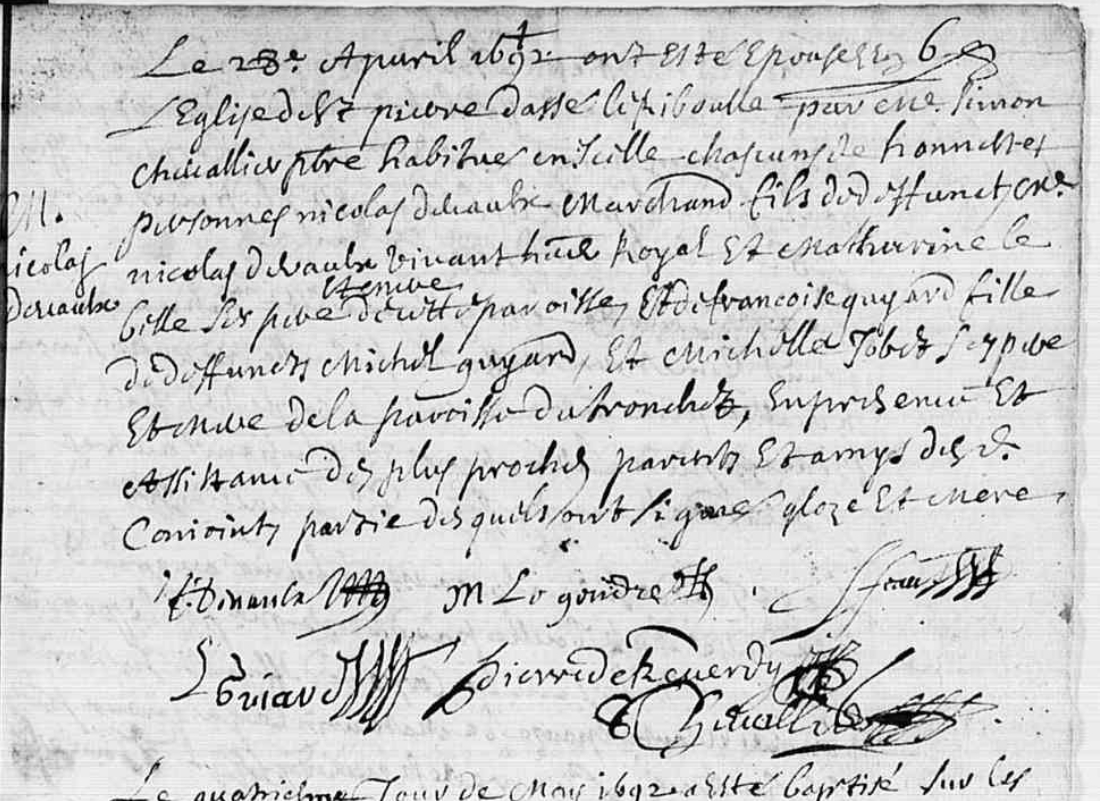 Le 28e Apvril 1692 ont Esté Epousés En
L'Eglise de St pierre dassé le Riboulle par Me Simon
chevallier pbre habitué en icelle chascuns de honnestes
M. nicolas devaulx
personnes nicolas devaulx Marchand fils de deffunct Me
nicolas devaulx vivant Royal Et Matherine le
et mere
belle ses pere de cette paroisse, Et de francoise guyard fille
de deffuncts Michel guyard, Et Michelle Jobet ses pere
Et mere de la paroisse du tronchet, En presence Et
Assistance des plus proches parents Et amys des ds
Conioints partie desquels ont signé gloze Et mere
M Le gendre
Briand Pierre de Reuerdy
Chevallier
Le quatriesme Jour de May 1692 a Esté baptisé sur les